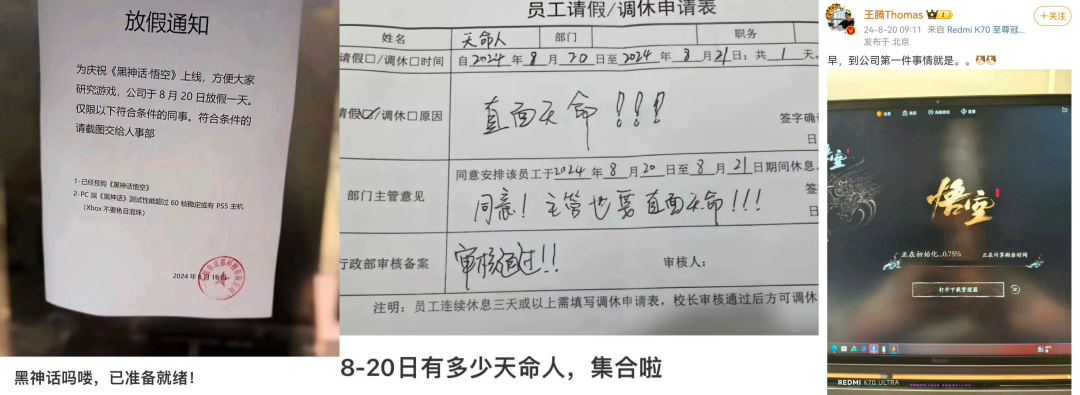 放假通知
为庆祝《黑神话·悟空》上线，方便大家
研究游戏，公司于 8 月 20 日放假一天。
仅限以下符合条件的同事。符合条件的
请截图交给人事部
1-已经预购《黑神话·悟空》
2-PC 端《黑神话》测试性能超过 60 帧稳定或有 PS5 主机
（Xbox 不要鱼目混珠）
2024 年 8 月 16 日
黑神话吗喽，已准备就绪！
员工请假/调休申请表
姓名
天命人
部门
职务
请假□/调休□时间
自2024 年 8 月 20 日至 2024 年 8 月 21 日；共 1 天。
请假☑/调休□原因
直面天命！！！
签字确
日
部门主管意见
同意安排该员工于2024 年 8 月 20 日至 8 月 21 日期间休息。
同意！主管也要直面天命！！！
签
日
行政部审核备案
审核通过！！
审核人：
注明：员工连续休息三天或以上需填写调休申请表，校长审核通过后方可调休
8-20日有多少天命人，集合啦
王腾Thomas
+关注
24-8-20 09:11 来自 Redmi K70 至尊冠...
发布于 北京
早，到公司第一件事情就是。。
悟空
正在初始化...0.75%
正在计算剩余时间
打开下载管理器
Redmi
REDMI K70 ULTRA